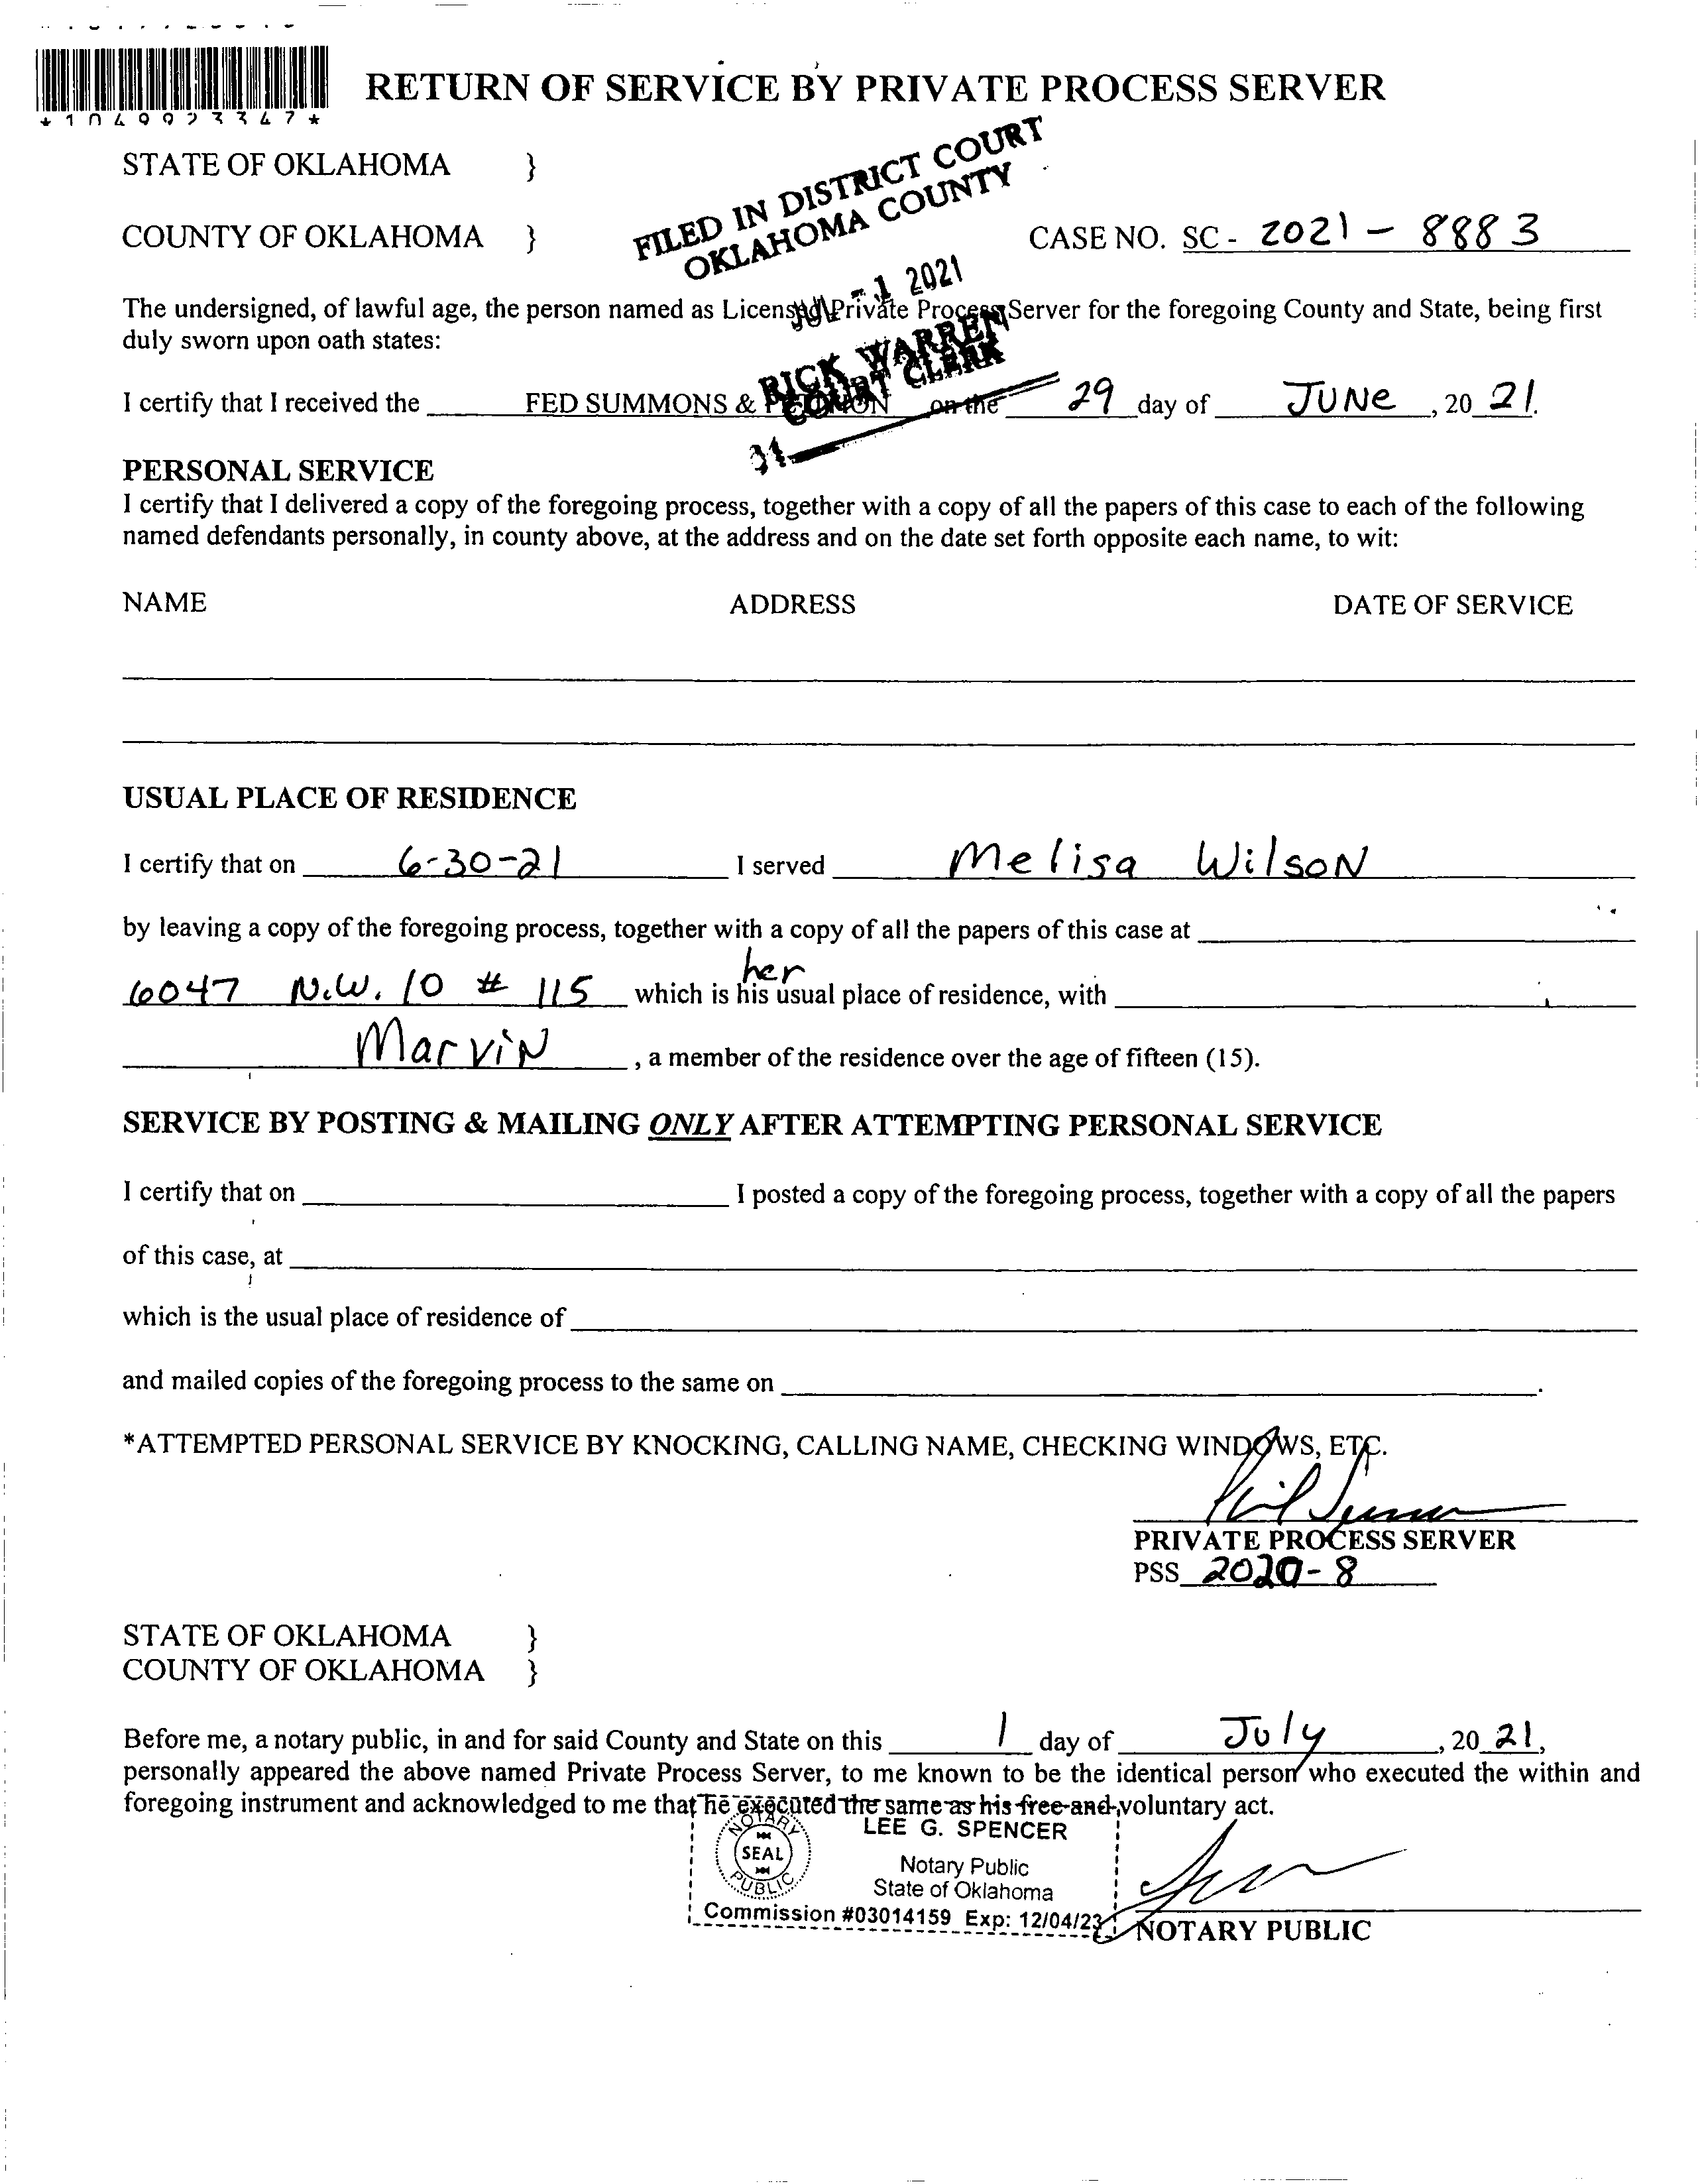 *1049923347*
RETURN OF SERVICE BY PRIVATE PROCESS SERVER
STATE OF OKLAHOMA }
FILED IN DISTRICT COURT
OKLAHOMA COUNTY
COUNTY OF OKLAHOMA }
CASE NO. SC - 2021 - 8883
JUL -1 2021
The undersigned, of lawful age, the person named as Licensed Private Process Server for the foregoing County and State, being first
duly sworn upon oath states:
RICK WARREN
COURT CLERK
I certify that I received the FED SUMMONS & PETITION on the 29 day of JUNE , 20 21.
31
PERSONAL SERVICE
I certify that I delivered a copy of the foregoing process, together with a copy of all the papers of this case to each of the following
named defendants personally, in county above, at the address and on the date set forth opposite each name, to wit:
NAME ADDRESS DATE OF SERVICE
USUAL PLACE OF RESIDENCE
I certify that on 6-30-21 I served Melisa Wilson
by leaving a copy of the foregoing process, together with a copy of all the papers of this case at
her
6047 N.W. 10 # 115 which is his usual place of residence, with
Marvin , a member of the residence over the age of fifteen (15).
SERVICE BY POSTING & MAILING ONLY AFTER ATTEMPTING PERSONAL SERVICE
I certify that on I posted a copy of the foregoing process, together with a copy of all the papers
of this case, at
which is the usual place of residence of
and mailed copies of the foregoing process to the same on .
*ATTEMPTED PERSONAL SERVICE BY KNOCKING, CALLING NAME, CHECKING WINDOWS, ETC.
PRIVATE PROCESS SERVER
PSS 2020-8
STATE OF OKLAHOMA }
COUNTY OF OKLAHOMA }
Before me, a notary public, in and for said County and State on this 1 day of July , 20 21,
personally appeared the above named Private Process Server, to me known to be the identical person who executed the within and
foregoing instrument and acknowledged to me that he executed the same as his free and voluntary act.
NOTARY
SEAL
PUBLIC
LEE G. SPENCER
Notary Public
State of Oklahoma
Commission #03014159 Exp: 12/04/23
NOTARY PUBLIC